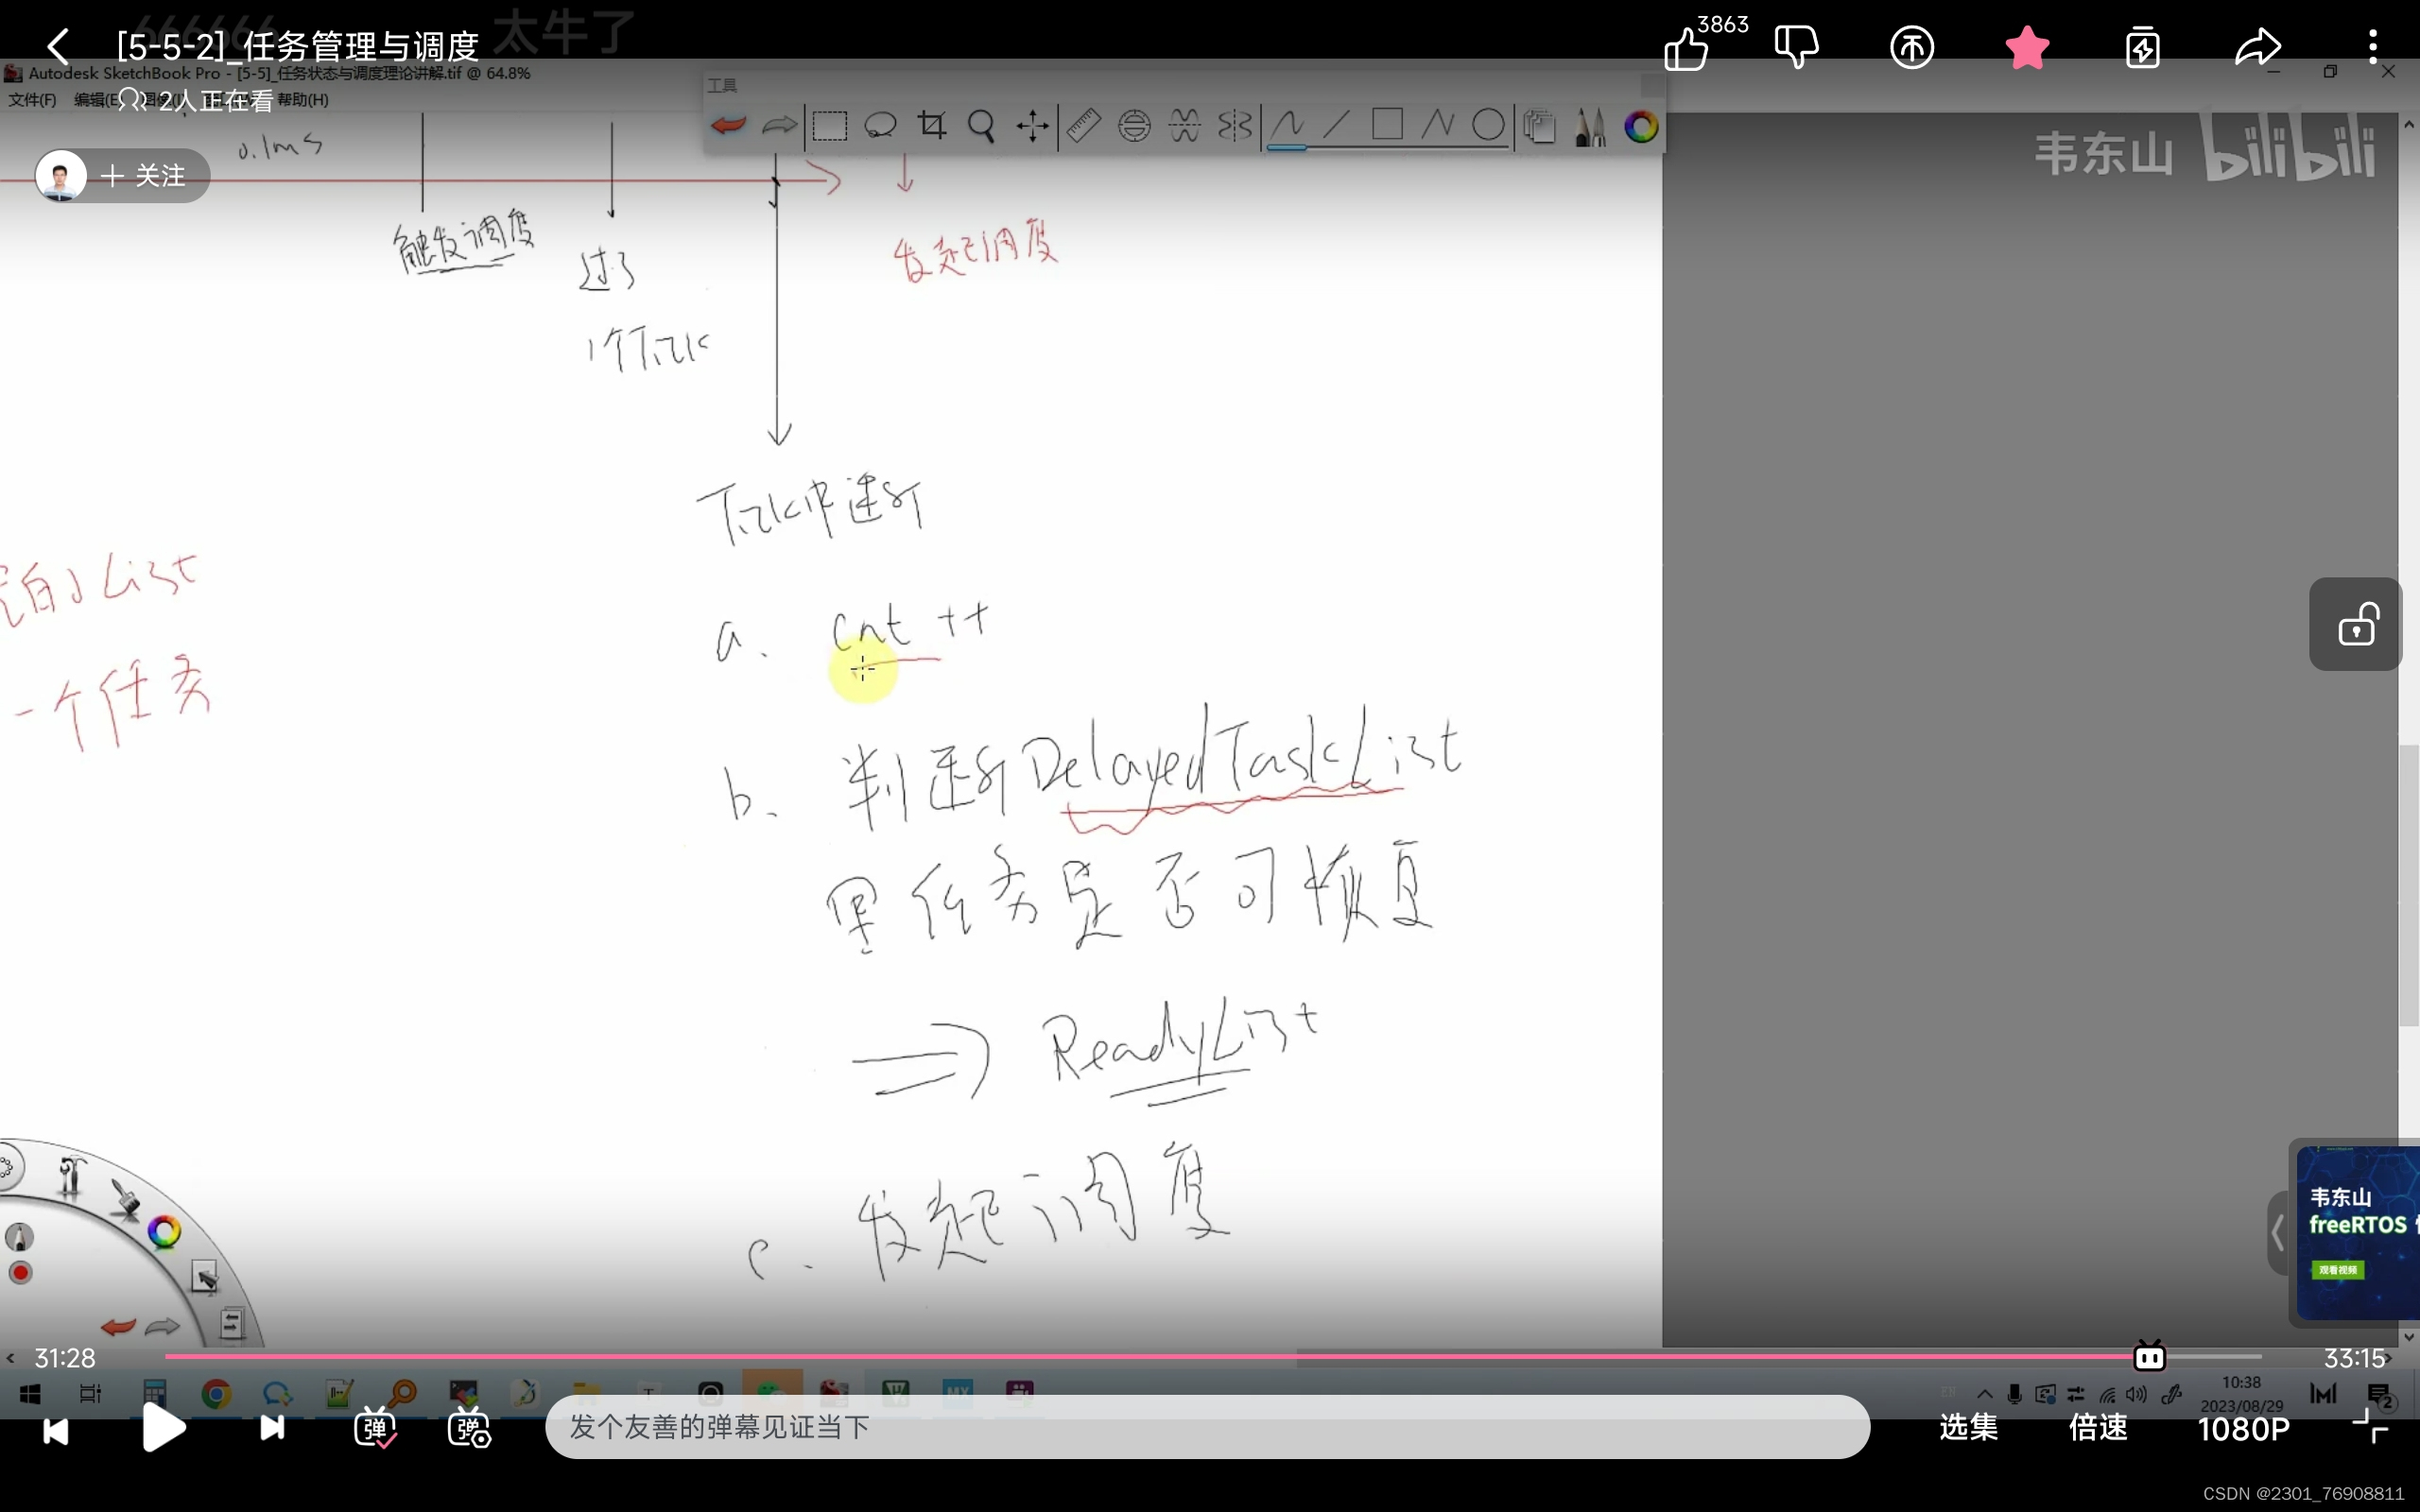 666666
太牛了
[5-5-2]_任务管理与调度
3863
Autodesk SketchBook Pro - [5-5]_任务状态与调度理论讲解.tif @ 64.8%
工具
文件(F) 编辑(E) 图像(I) 帮助(H)
2人正在看
0.1ms
+ 关注
韦东山 bilibili
触发调度
过了
1个Tick
发起调度
Tick中断
的List
一个任务
a. cnt ++
b. 判断DelayedTaskList
里任务是否可恢复
⇒ ReadyList
c. 发起调度
韦东山
freeRTOS
观看视频
31:28
33:15
10:38
2023/08/29
2
弹
弹
发个友善的弹幕见证当下
选集
倍速
1080P
CSDN @2301_76908811